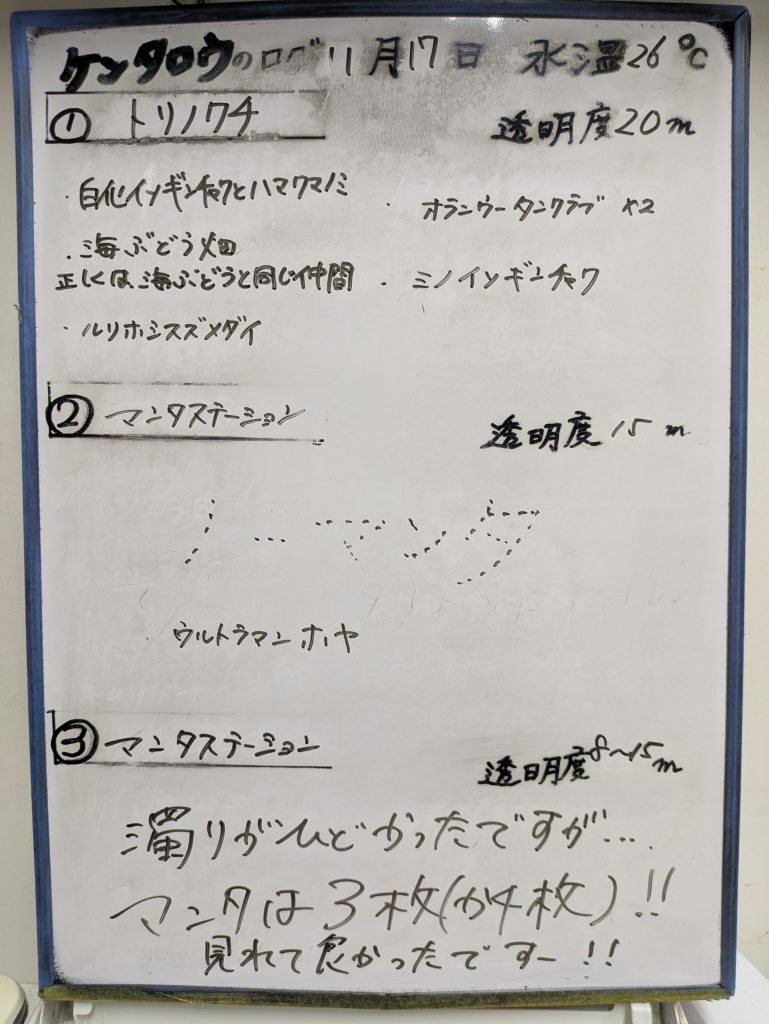 ケンタロウのログ 11月17日 水温26℃
① トリノクチ 透明度20m
・白化イソギンチャクとハマクマノミ
・海ぶどう畑
正しくは海ぶどうと同じ仲間
・ルリホシスズメダイ
・オランウータンクラブ ×2
・ミノイソギンチャク
② マンタステーション 透明度15m
ノーマンタ
・ウルトラマンホヤ
③ マンタステーション 透明度8~15m
濁りがひどかったですが...
マンタは3枚(か4枚)!!
見れて良かったですー!!